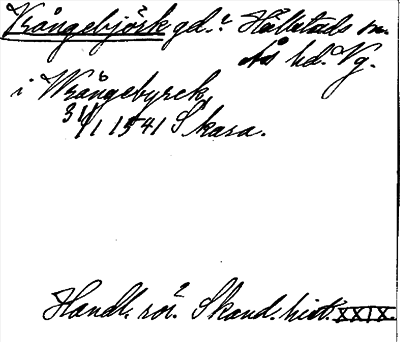 Vrångebjörk gd.? Hällstads sn.
Ås hd. Vg.
i Wrångebyrck,
31/1 1541 Skara.
Handl. rör. Skand. hist. XXIX.